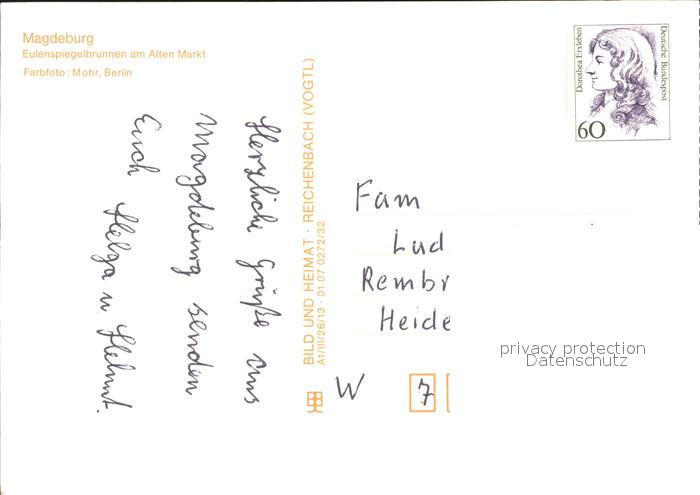 Magdeburg
Eulenspiegelbrunnen am Alten Markt
Farbfoto: Mohr, Berlin
Herzliche Grüße aus
Magdeburg senden
Euch Helga u. Helmut.
BILD UND HEIMAT · REICHENBACH (VOGTL)
A1/III/26/13 · 01 07 0272/32
Dorothea Erxleben
Deutsche Bundespost
60
Fam
Lud
Rembr
Heide
W 7
privacy protection
Datenschutz